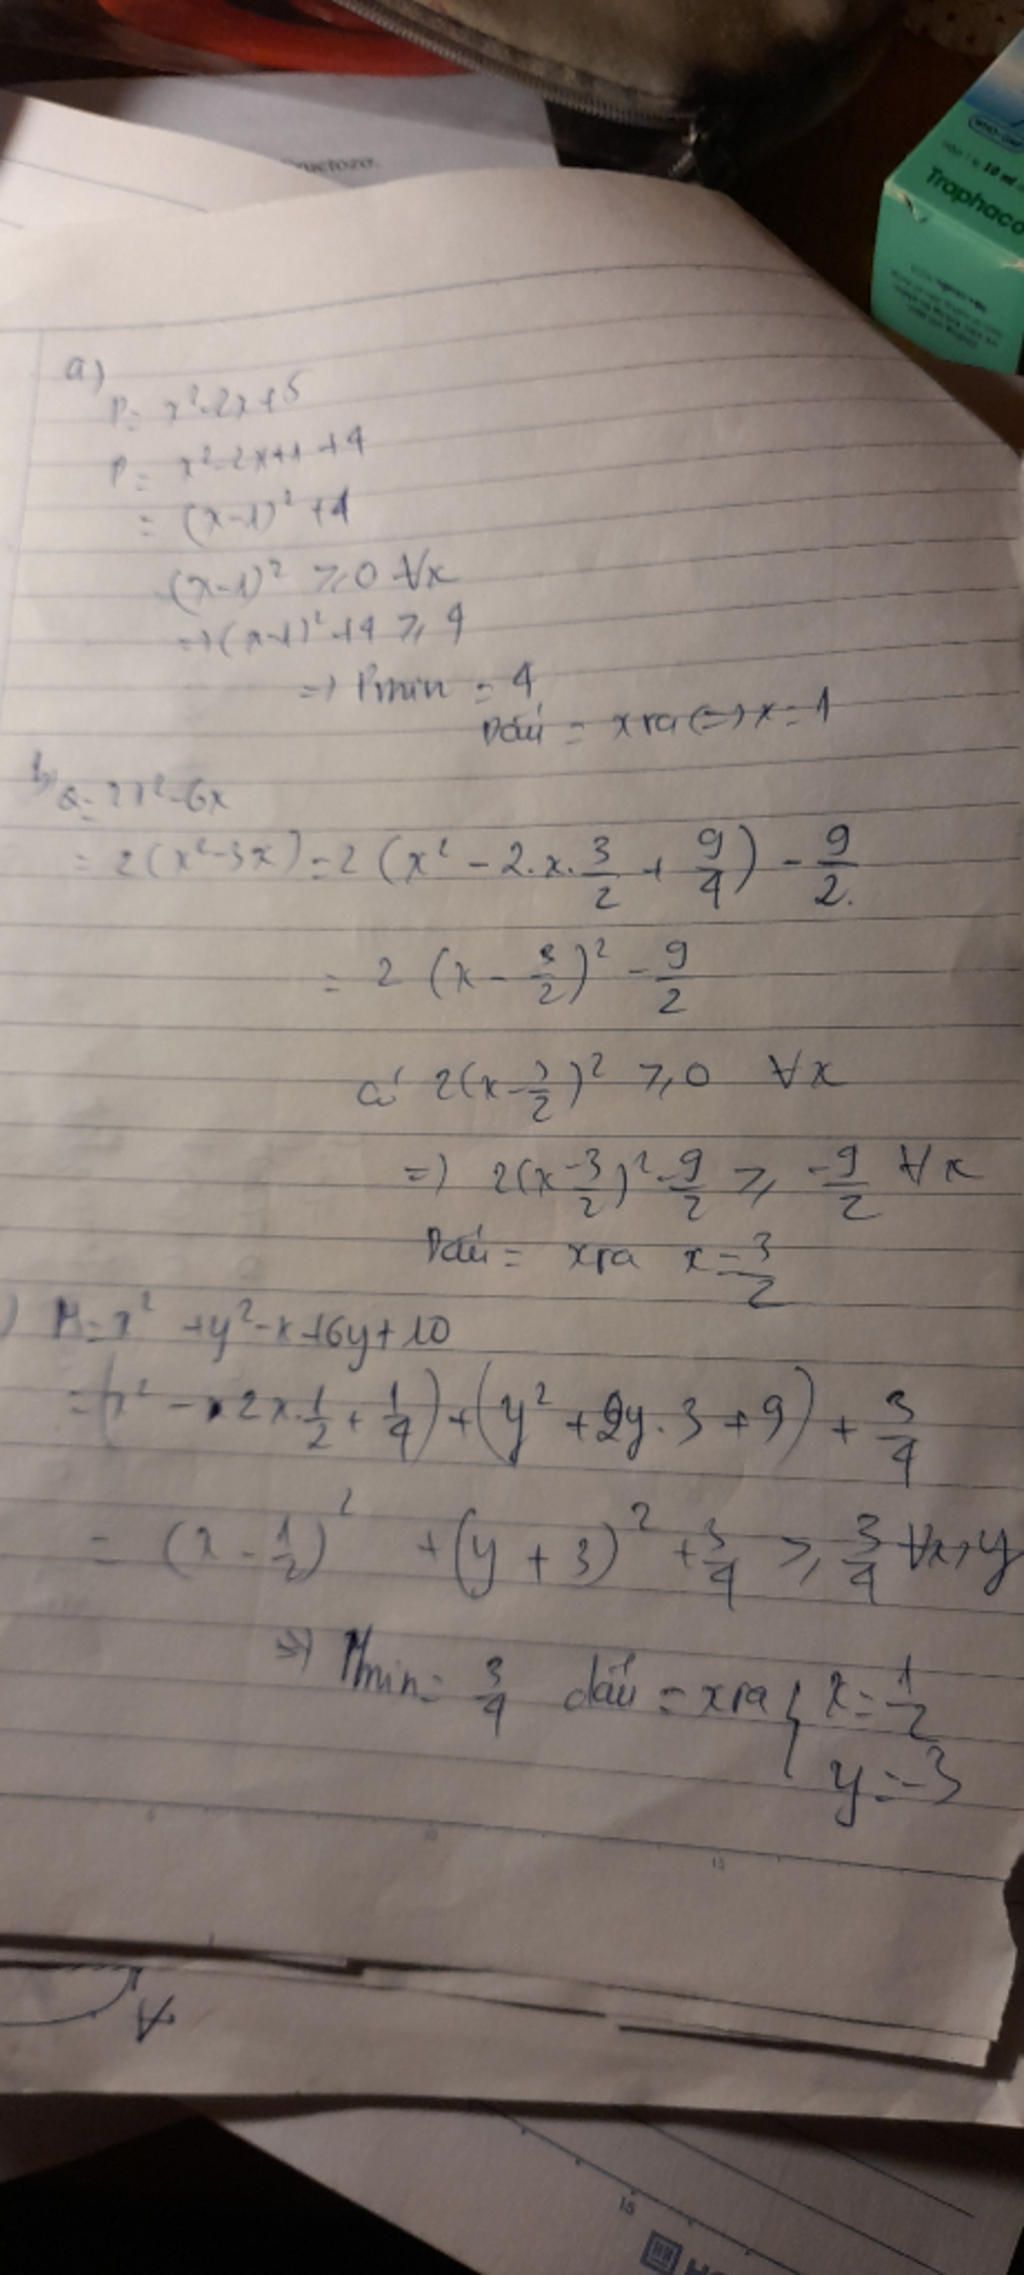 uctozo.
WHO-GMP
10 ml
Traphaco
a)
P = x² - 2x + 5
P = x² - 2x + 1 + 4
= (x-1)² + 4
(x-1)² ≥ 0 ∀x
=> (x-1)² + 4 ≥ 4
=> Pmin = 4
Dấu = xra <=> x = 1
b) Q = 2x² - 6x
= 2(x² - 3x) = 2(x² - 2.x.3/2 + 9/4) - 9/2.
= 2(x - 3/2)² - 9/2
có 2(x - 3/2)² ≥ 0 ∀x
=> 2(x - 3/2)² - 9/2 ≥ -9/2 ∀x
Dấu = xra x = 3/2
) M = x² + y² - x + 6y + 10
= (x² - 2x.1/2 + 1/4) + (y² + 2y.3 + 9) + 3/4
= (x - 1/2)² + (y + 3)² + 3/4 ≥ 3/4 ∀x,y
=> Mmin = 3/4 dấu = xra { x = 1/2
y = -3
10
15
A
15